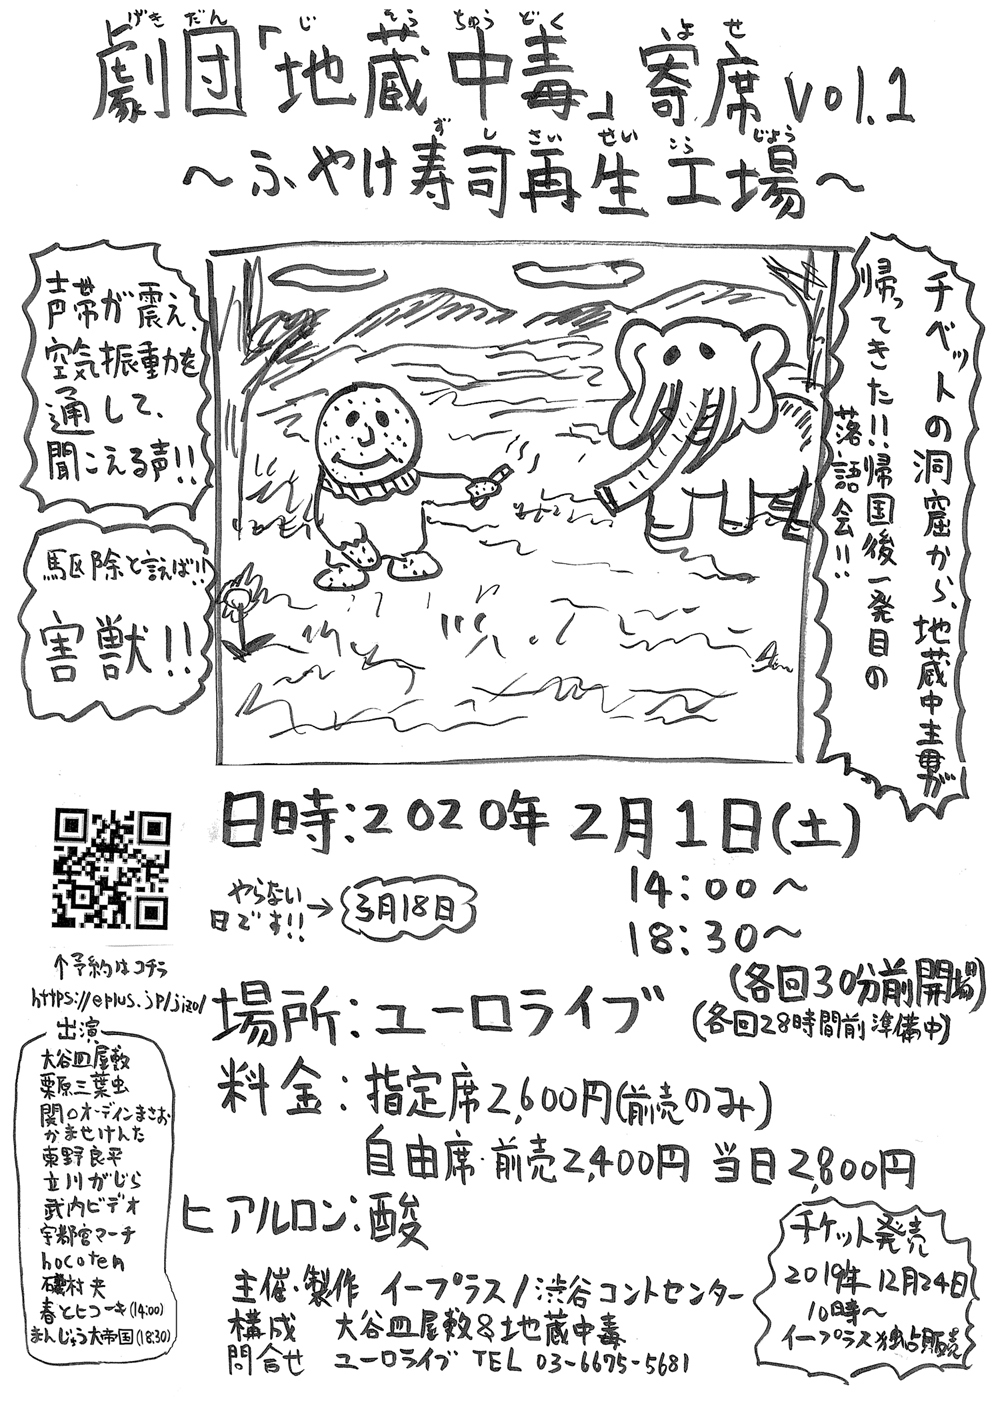 劇団「地蔵中毒」寄席 vol.1
げきだん じぞうちゅうどく よせ
～ふやけ寿司再生工場～
ずし さいせい こうじょう
声帯が震え、
空気振動を
通して、
聞こえる声!!
駆除と言えば!!
害獣!!
チベットの洞窟から、地蔵中毒が
帰ってきた!!帰国後一発目の
落語会!!
日時:2020年2月1日(土)
14:00～
18:30～
やらない
日です!!→
3月18日
(各回30分前開場)
(各回28時間前準備中)
↑予約はコチラ
https://eplus.jp/jizo/
場所:ユーロライブ
料金:指定席2,600円(前売のみ)
自由席・前売2,400円 当日2,800円
ヒアルロン:酸
出演
大谷皿屋敷
栗原三葉虫
関口オーディンまさお
かませけんた
東野良平
立川がじら
武内ビデオ
宇都宮マーチ
hocoten
礒村夫
春とヒコーキ(14:00)
まんじゅう大帝国(18:30)
主催・製作 イープラス/渋谷コントセンター
構成 大谷皿屋敷&地蔵中毒
問合せ ユーロライブ TEL 03-6675-5681
チケット発売
2019年12月24日
10時～
イープラス独占販売